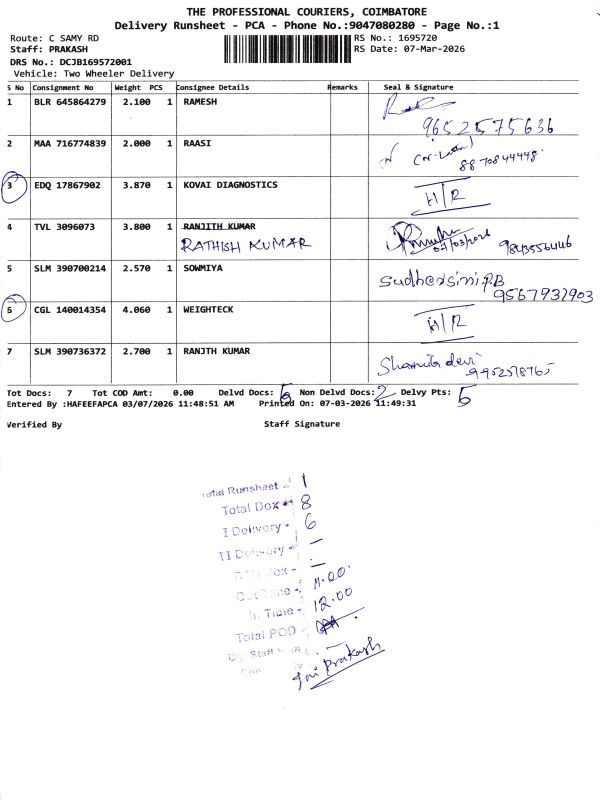 THE PROFESSIONAL COURIERS, COIMBATORE
Delivery Runsheet - PCA - Phone No.:9047080280 - Page No.:1
Route: C SAMY RD RS No.: 1695720
Staff: PRAKASH RS Date: 07-Mar-2026
DRS No.: DCJB169572001
Vehicle: Two Wheeler Delivery
S No Consignment No Weight PCS Consignee Details Remarks Seal & Signature
1 BLR 645864279 2.100 1 RAMESH
9652575636
2 MAA 716774839 2.000 1 RAASI
8870844448
3 EDQ 17867902 3.870 1 KOVAI DIAGNOSTICS H/R
4 TVL 3096073 3.800 1 RANJITH KUMAR
RATHISH KUMAR 07/03/2026 9843556446
5 SLM 390700214 2.570 1 SOWMIYA
Sudharsini.P.B
9567937903
6 CGL 140014354 4.060 1 WEIGHTECK H/R
7 SLM 390736372 2.700 1 RANJTH KUMAR
Shamita devi
Tot Docs: 7 Tot COD Amt: 0.00 Delvd Docs: 6 Non Delvd Docs: 2 Delvy Pts: 5
Entered By :HAFEEFAPCA 03/07/2026 11:48:51 AM Printed On: 07-03-2026 11:49:31
Verified By Staff Signature
Total Runsheet - 1
Total Dox - 8
I Delivery - 6
II Delivery - —
Dox - —
Out Time - 11.00
In Time - 12.00
Total POD -
Jai Prakash